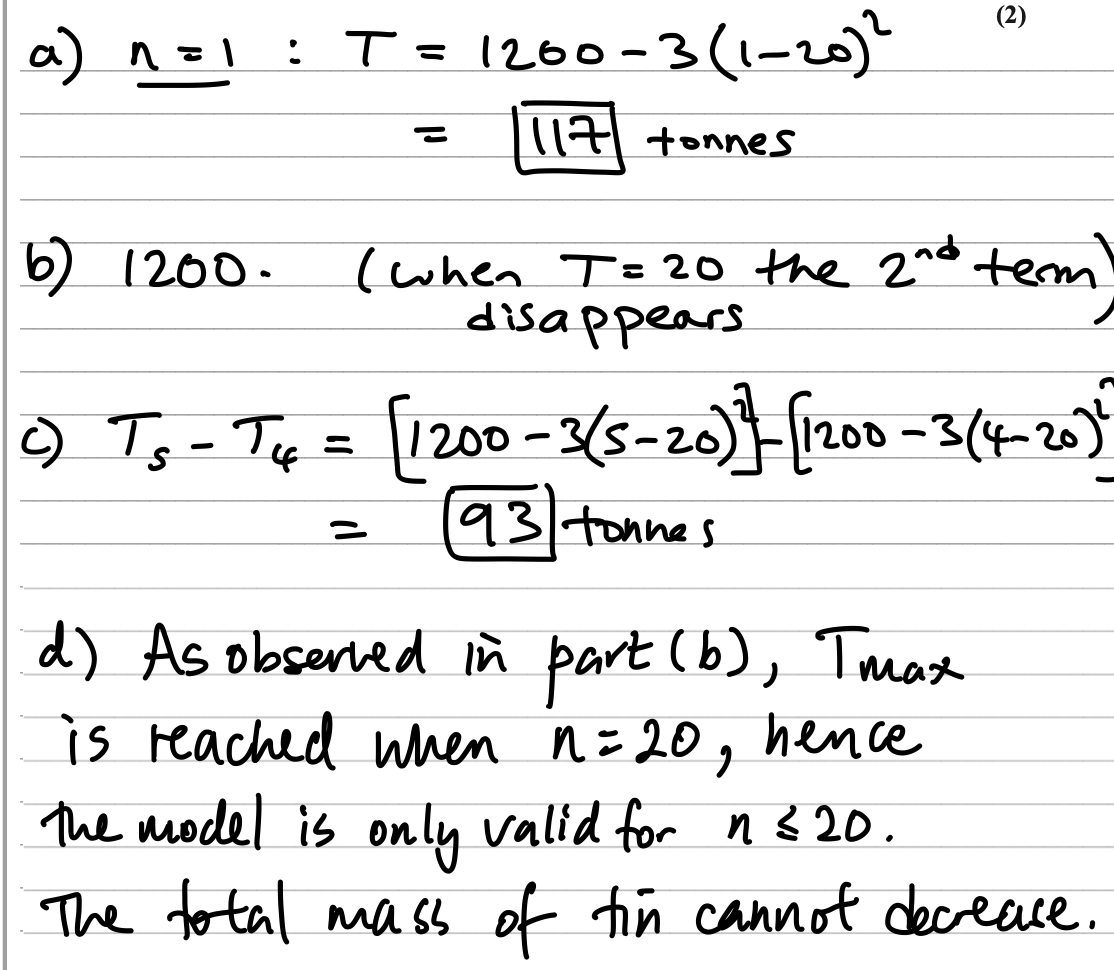 (2)
a) n = 1 : T = 1200 - 3(1-20)²
= 117 tonnes
b) 1200. (when T = 20 the 2nd term)
disappears
c) T₅ - T₄ = [1200 - 3(5-20)²] - [1200 - 3(4-20)²]
= 93 tonnes
d) As observed in part (b), Tmax
is reached when n = 20, hence
the model is only valid for n ≤ 20.
The total mass of tin cannot decrease.